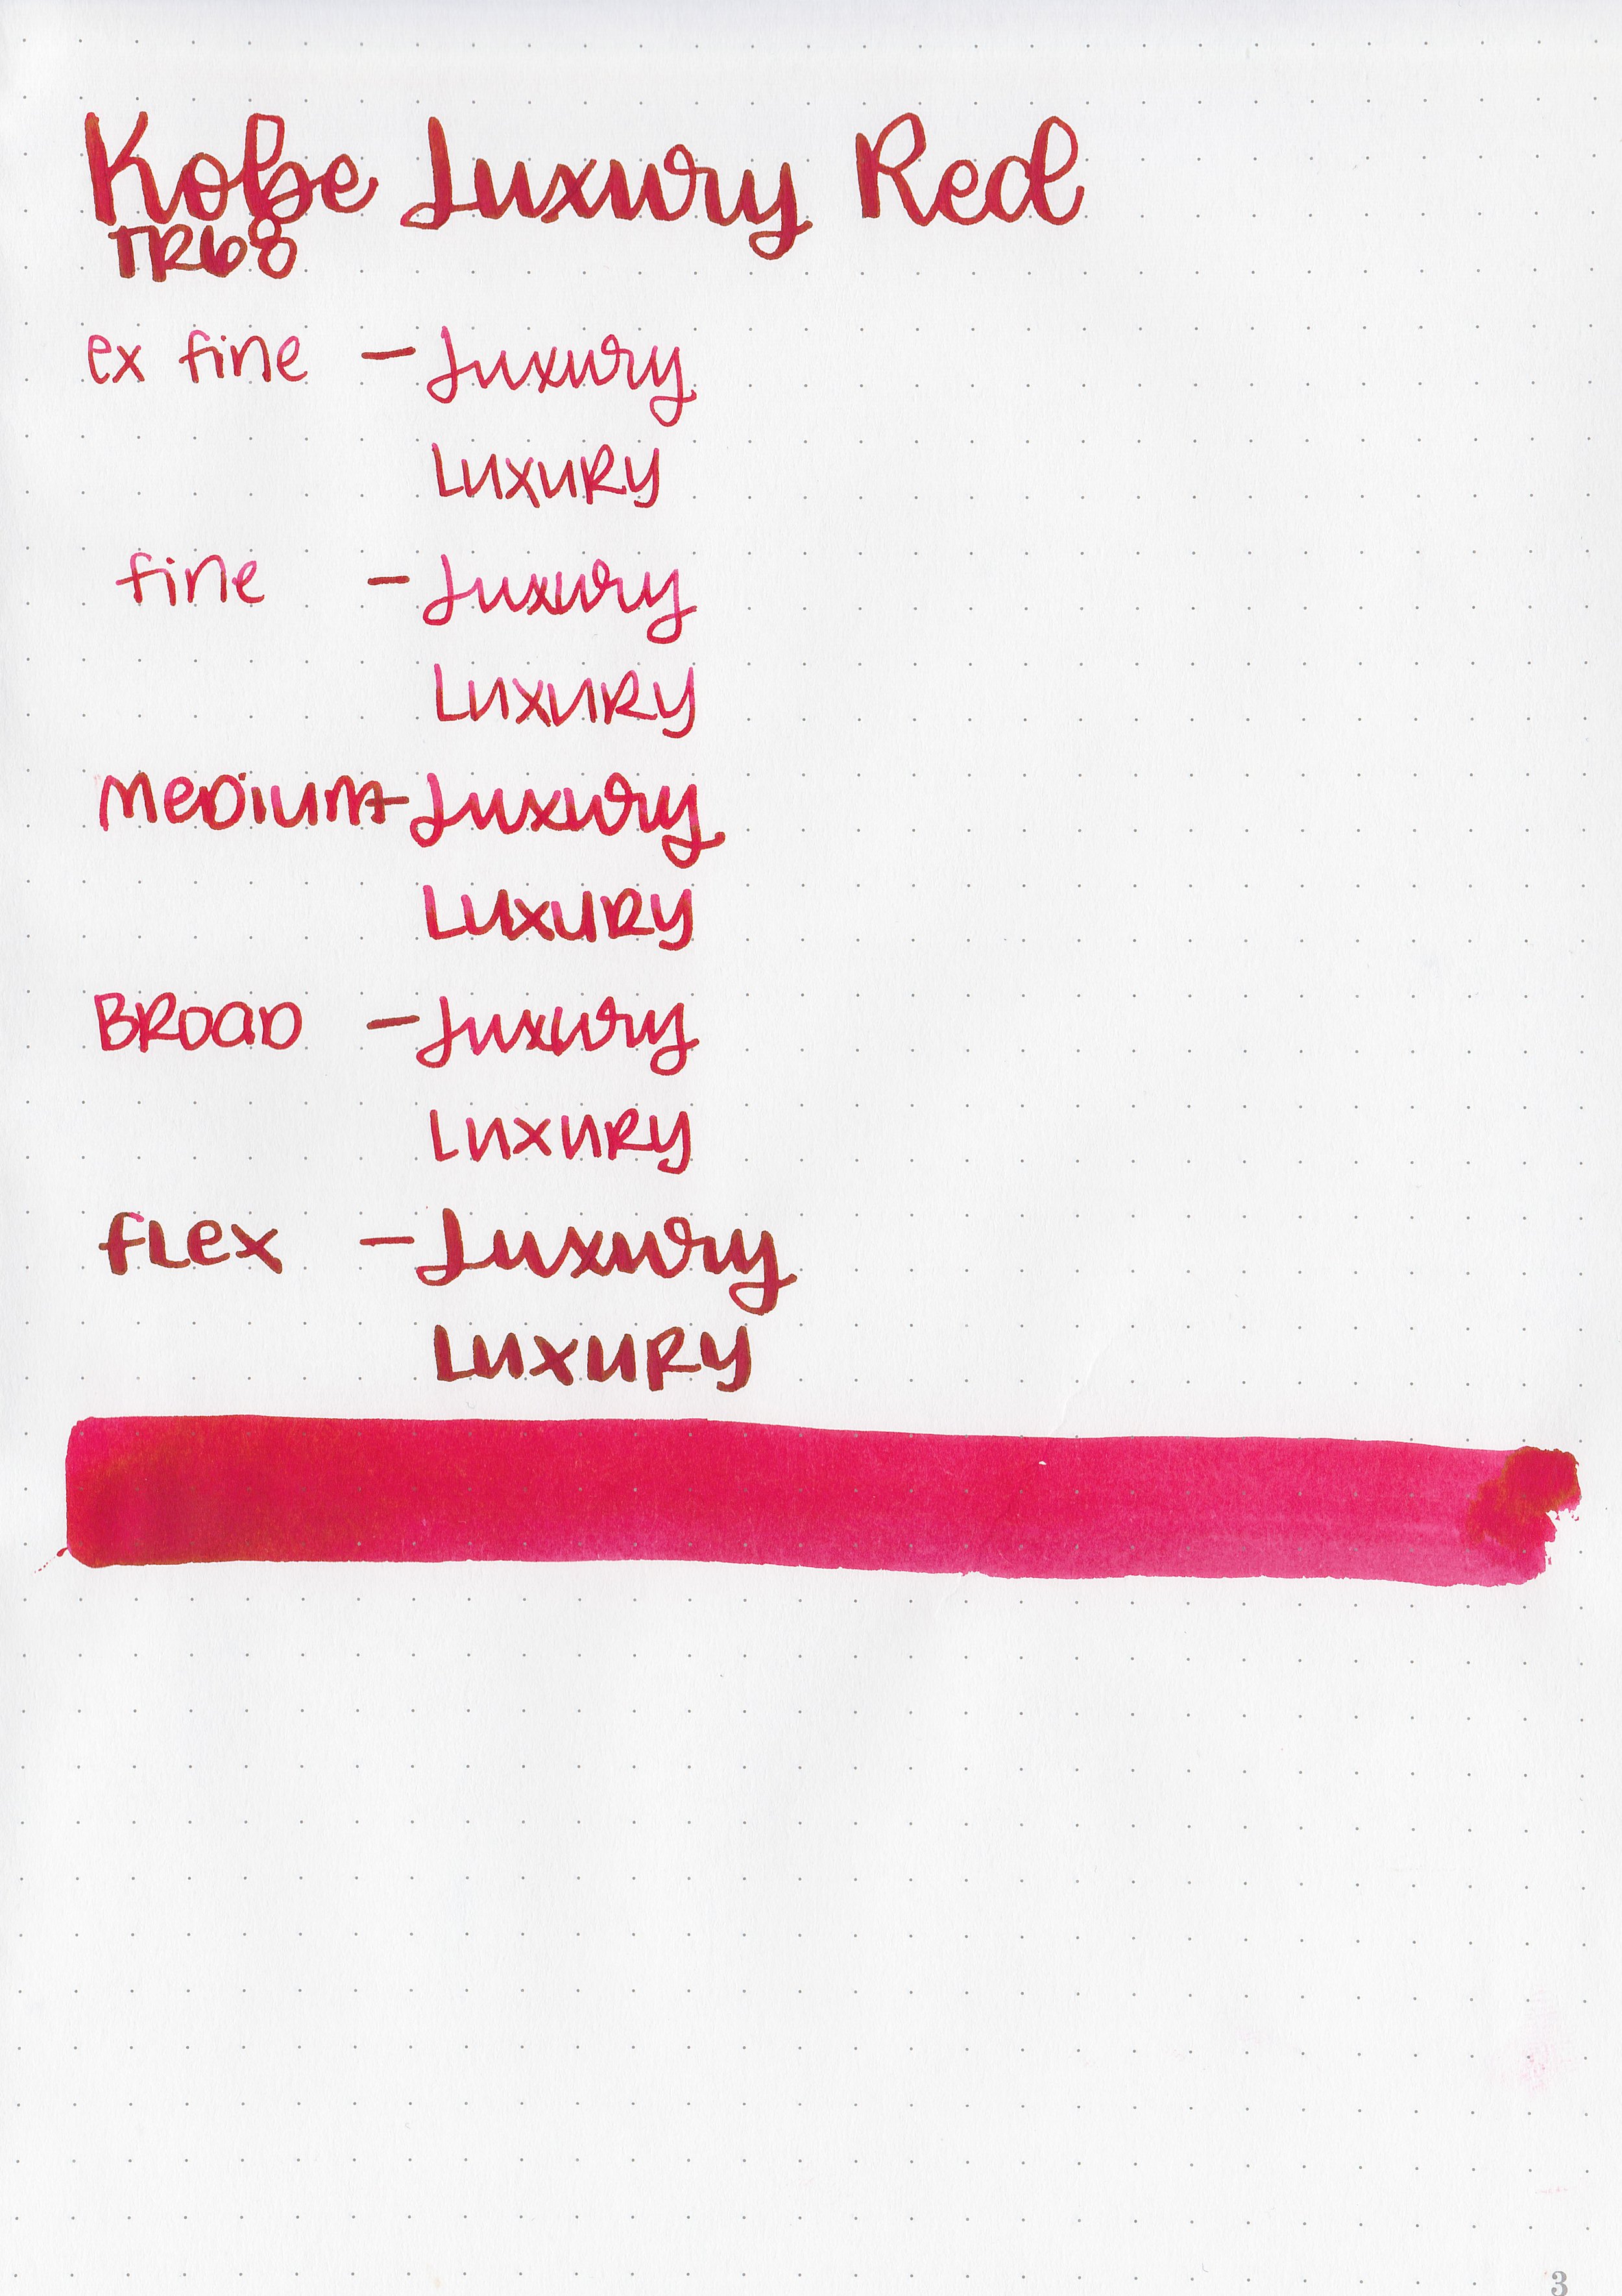 Kobe Luxury Red
TR68
ex fine - Luxury
LUXURY
fine - Luxury
LUXURY
MeDiUm - Luxury
LUXURY
BROaD - Luxury
LUXURY
fLex - Luxury
LUXURY
3